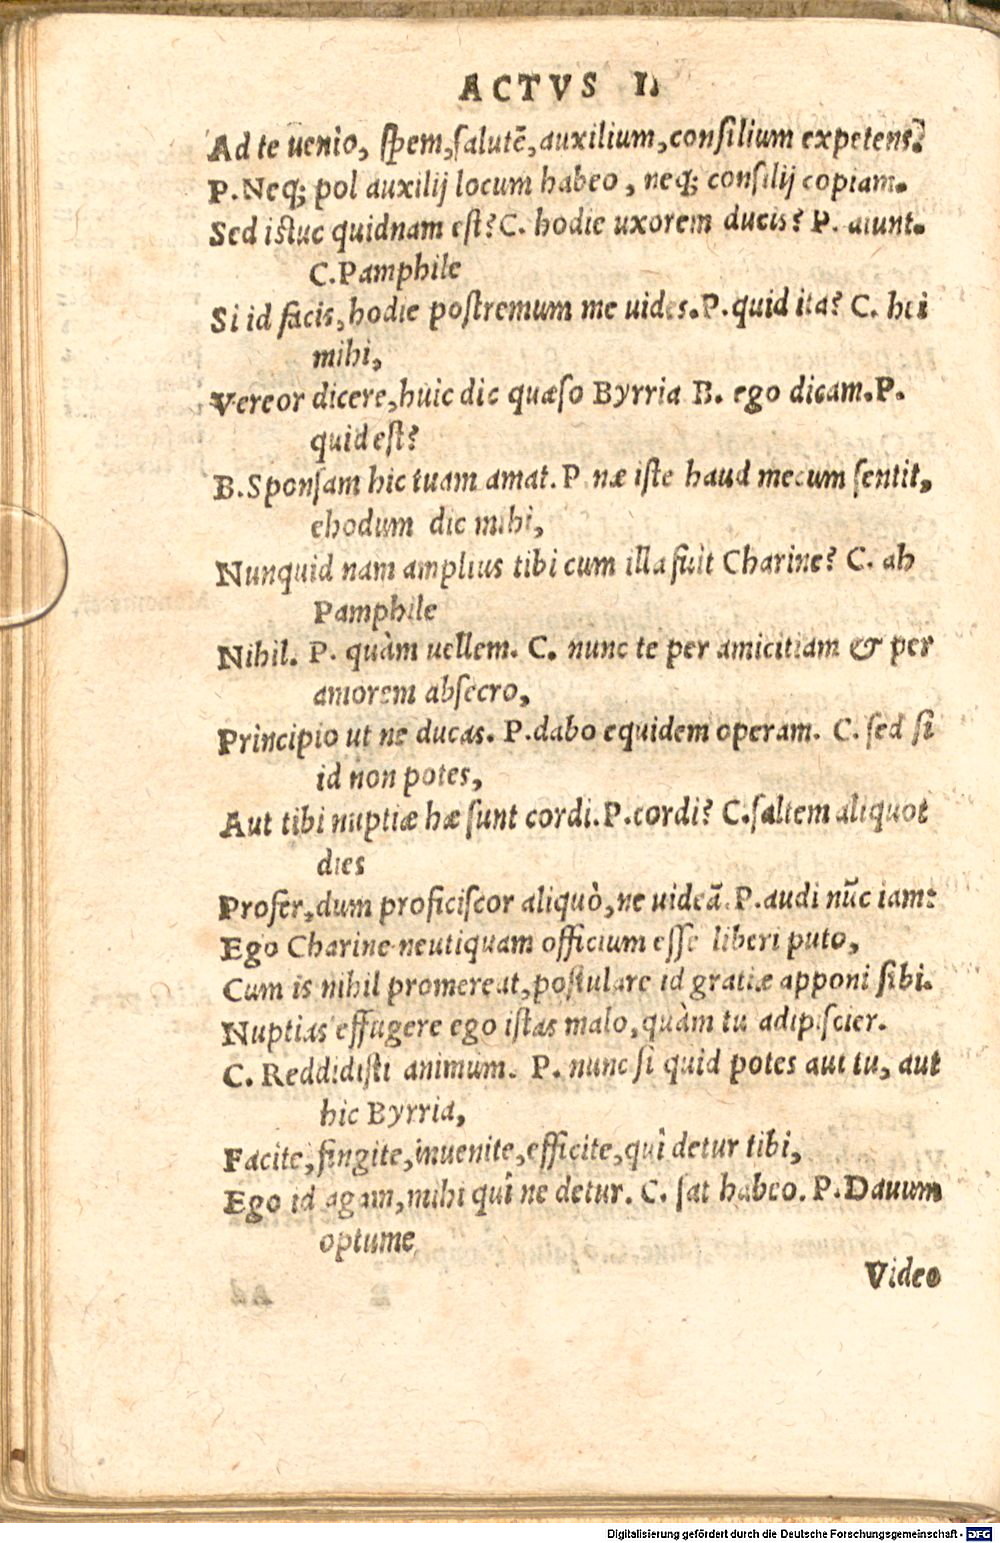 ACTVS I.
Ad te uenio, spem, salutē, auxilium, consilium expetens.
P. Neq; pol auxilij locum habeo, neq; consilij copiam.
Sed istuc quidnam est? C. hodie uxorem ducis? P. aiunt.
C. Pamphile
Si id facis, hodie postremum me uides. P. quid ita? C. hei
mihi,
Vereor dicere, huic dic quæso Byrria B. ego dicam. P.
quid est?
B. Sponsam hic tuam amat. P. næ iste haud mecum sentit,
ehodum dic mihi,
Nunquid nam amplius tibi cum illa fuit Charine? C. ah
Pamphile
Nihil. P. quàm uellem. C. nunc te per amicitiam & per
amorem absecro,
Principio ut ne ducas. P. dabo equidem operam. C. sed si
id non potes,
Aut tibi nuptiæ hæ sunt cordi. P. cordi? C. saltem aliquot
dies
Profer, dum proficiscor aliquò, ne uideā. P. audi nūc iam:
Ego Charine neutiquam officium esse liberi puto,
Cum is nihil promereat, postulare id gratiæ apponi sibi.
Nuptias effugere ego istas malo, quàm tu adipiscier.
C. Reddidisti animum. P. nunc si quid potes aut tu, aut
hic Byrria,
Facite, fingite, inuenite, efficite, quì detur tibi,
Ego id agam, mihi quì ne detur. C. sat habeo. P. Dauum
optume
Video
Digitalisierung gefördert durch die Deutsche Forschungsgemeinschaft - DFG